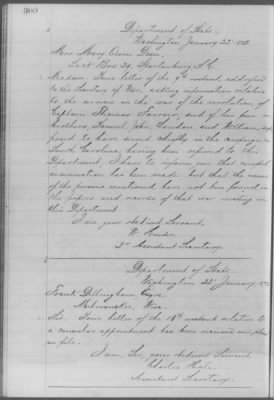 300
Department of State
Washington January 22d 187
Mrs. Mary Anna Dean,
Lock Box 29, Spartanburg S.C.
Madam: Your letter of the 9th instant, addressed
to the Secretary of War, asking information relative
to the services in the war of the revolution of
Captain Thomas Farrow, and of his four
brothers, Samuel, John, Landon and William, sup-
posed to have served chiefly in the campaign
South Carolina, having been referred to this
Department, I have to inform you that careful
examination has been made but that the names
of the persons mentioned have not been found in
the papers and records of that war remaining in
this Department.
I am your obedient Servant,
W. Hunter
2d Assistant Secretary
Department of State
Washington 22d January, 187
Frank Dillingham Esqre
Milwaukee, Wis.
Sir: Your letter of the 18th instant relative to
a consular appointment has been received and placed
on file.
I am, Sir, your obedient Servant
Charles Hale
Assistant Secretary.